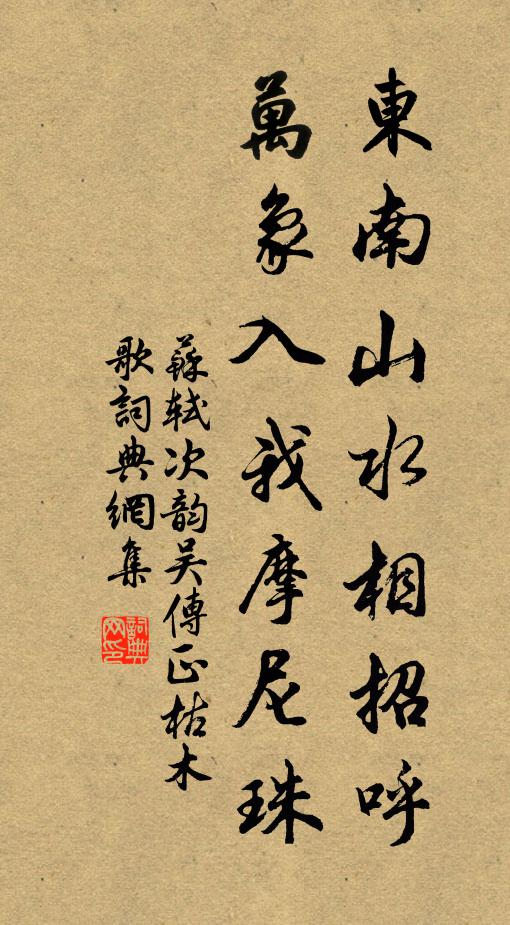 東南山水相招呼
萬象入我摩尼珠
蘇軾次韵吴傳正枯木
歌詞典網集
詞典网印